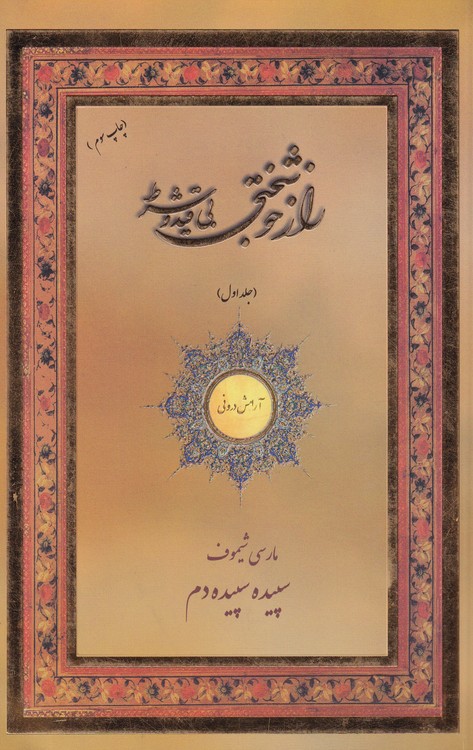 (چاپ سوم)
راز خوشبختی بی قید و شرط
(جلد اول)
آرامش درونی
مارسی شیموف
سپیده سپیده دم